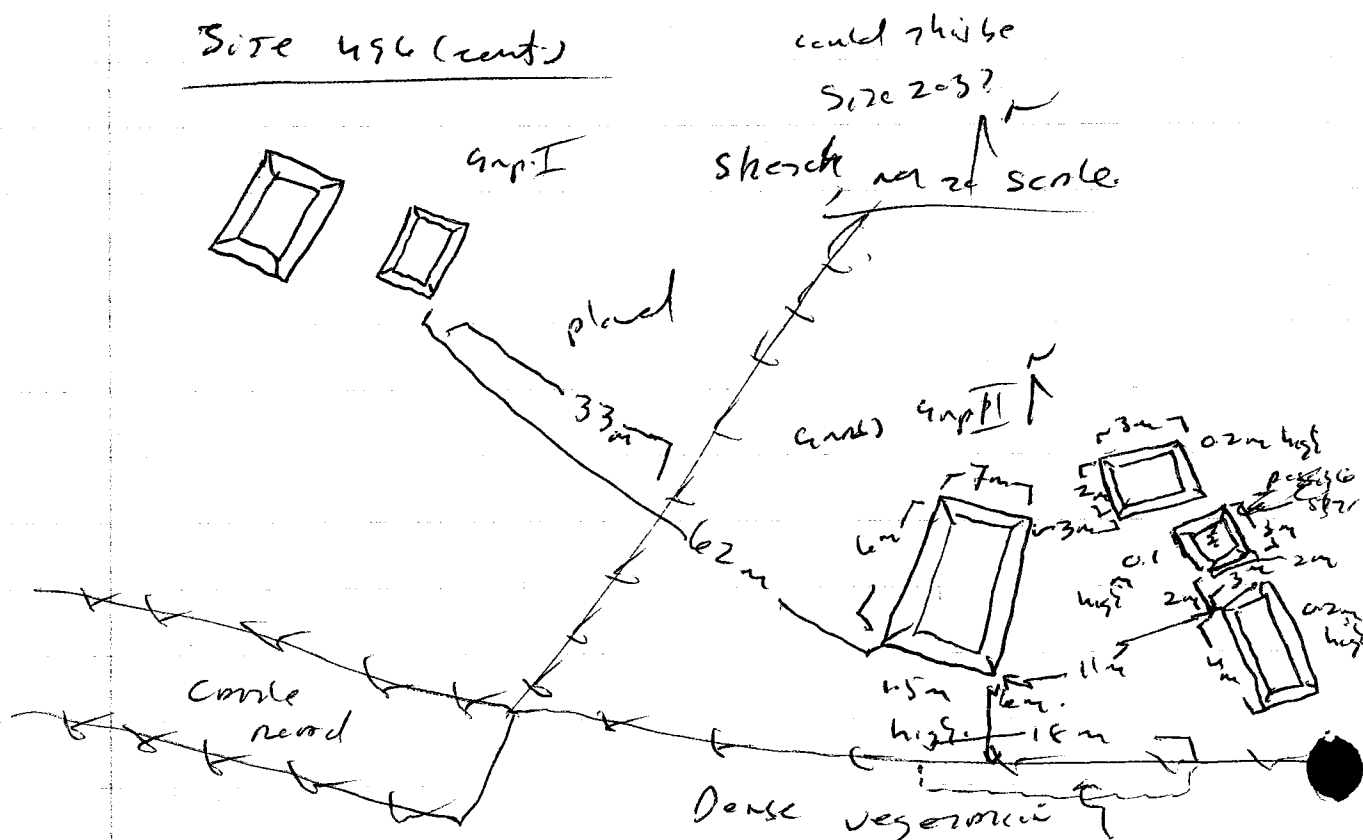 Site 496 (cont.)
could this be
Site 203?
N
Sketch, not to scale.
Group I
plowed
33m
62m
Grass
Group II
N
7m
6m
3m
3m
2m
0.2m high
possible
3m
2m
0.1
m
high
2m
3m
0.2m
high
4m
11m
1.5m
high
6m.
18m
Cattle
road
Dense vegetation